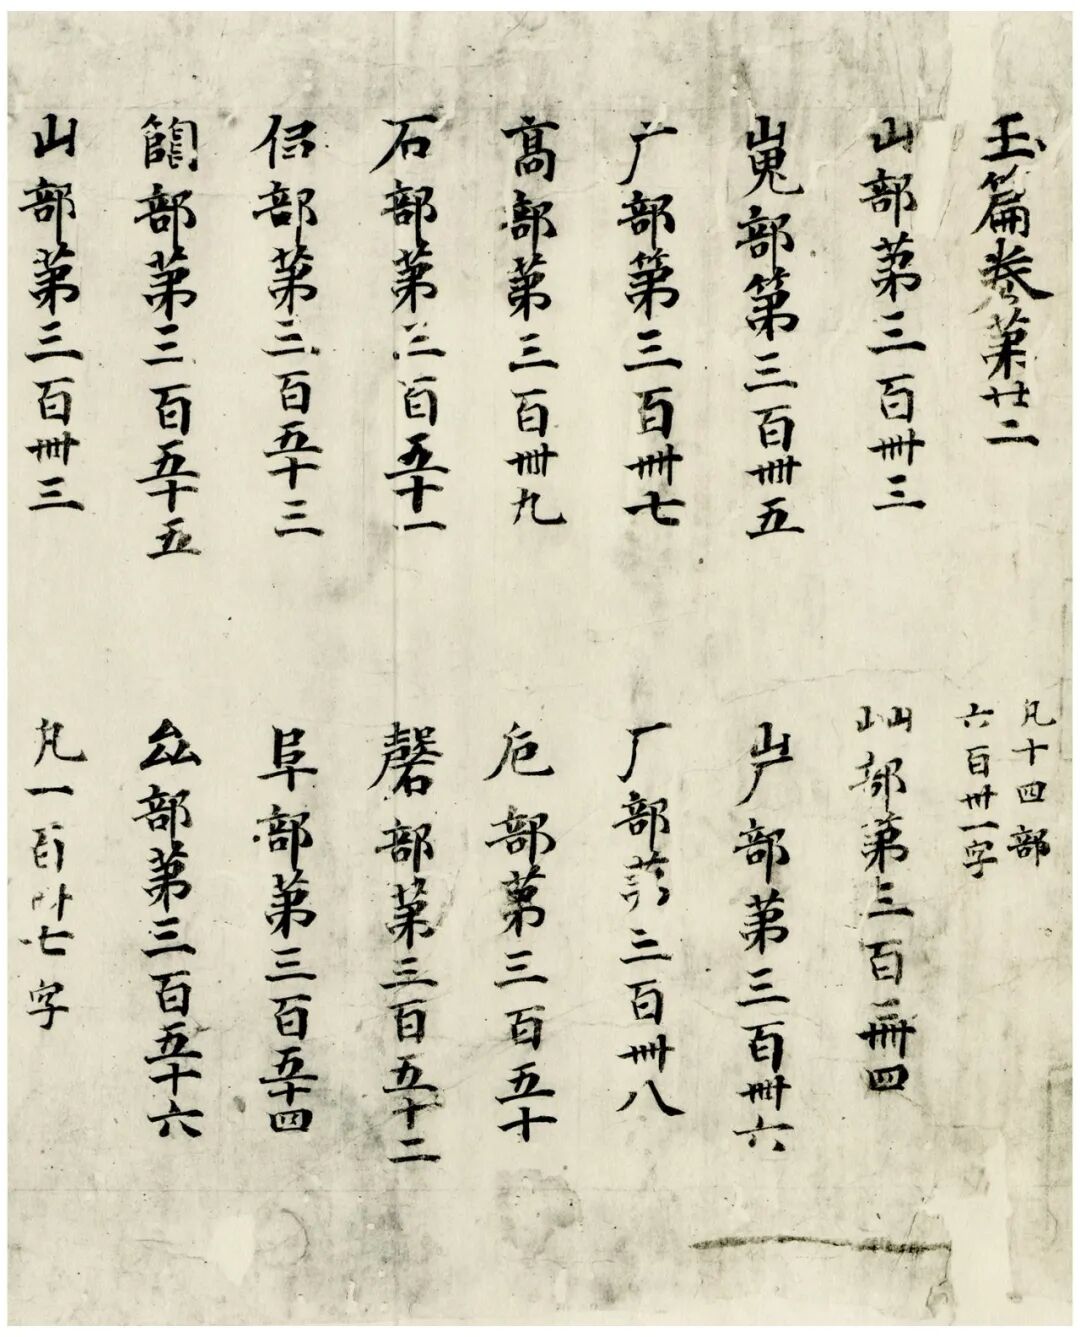 玉篇卷第廿二
凡十四部
六百卌一字
山部第三百卌三
屾部第三百卌四
嵬部第三百卌五
屵部第三百卌六
广部第三百卌七
厂部第三百卌八
高部第三百卌九
危部第三百五十
石部第三百五十一
磬部第三百五十二
𠂤部第三百五十三
阜部第三百五十四
𨺅部第三百五十五
厽部第三百五十六
山部第三百卌三
凡一百卌七字